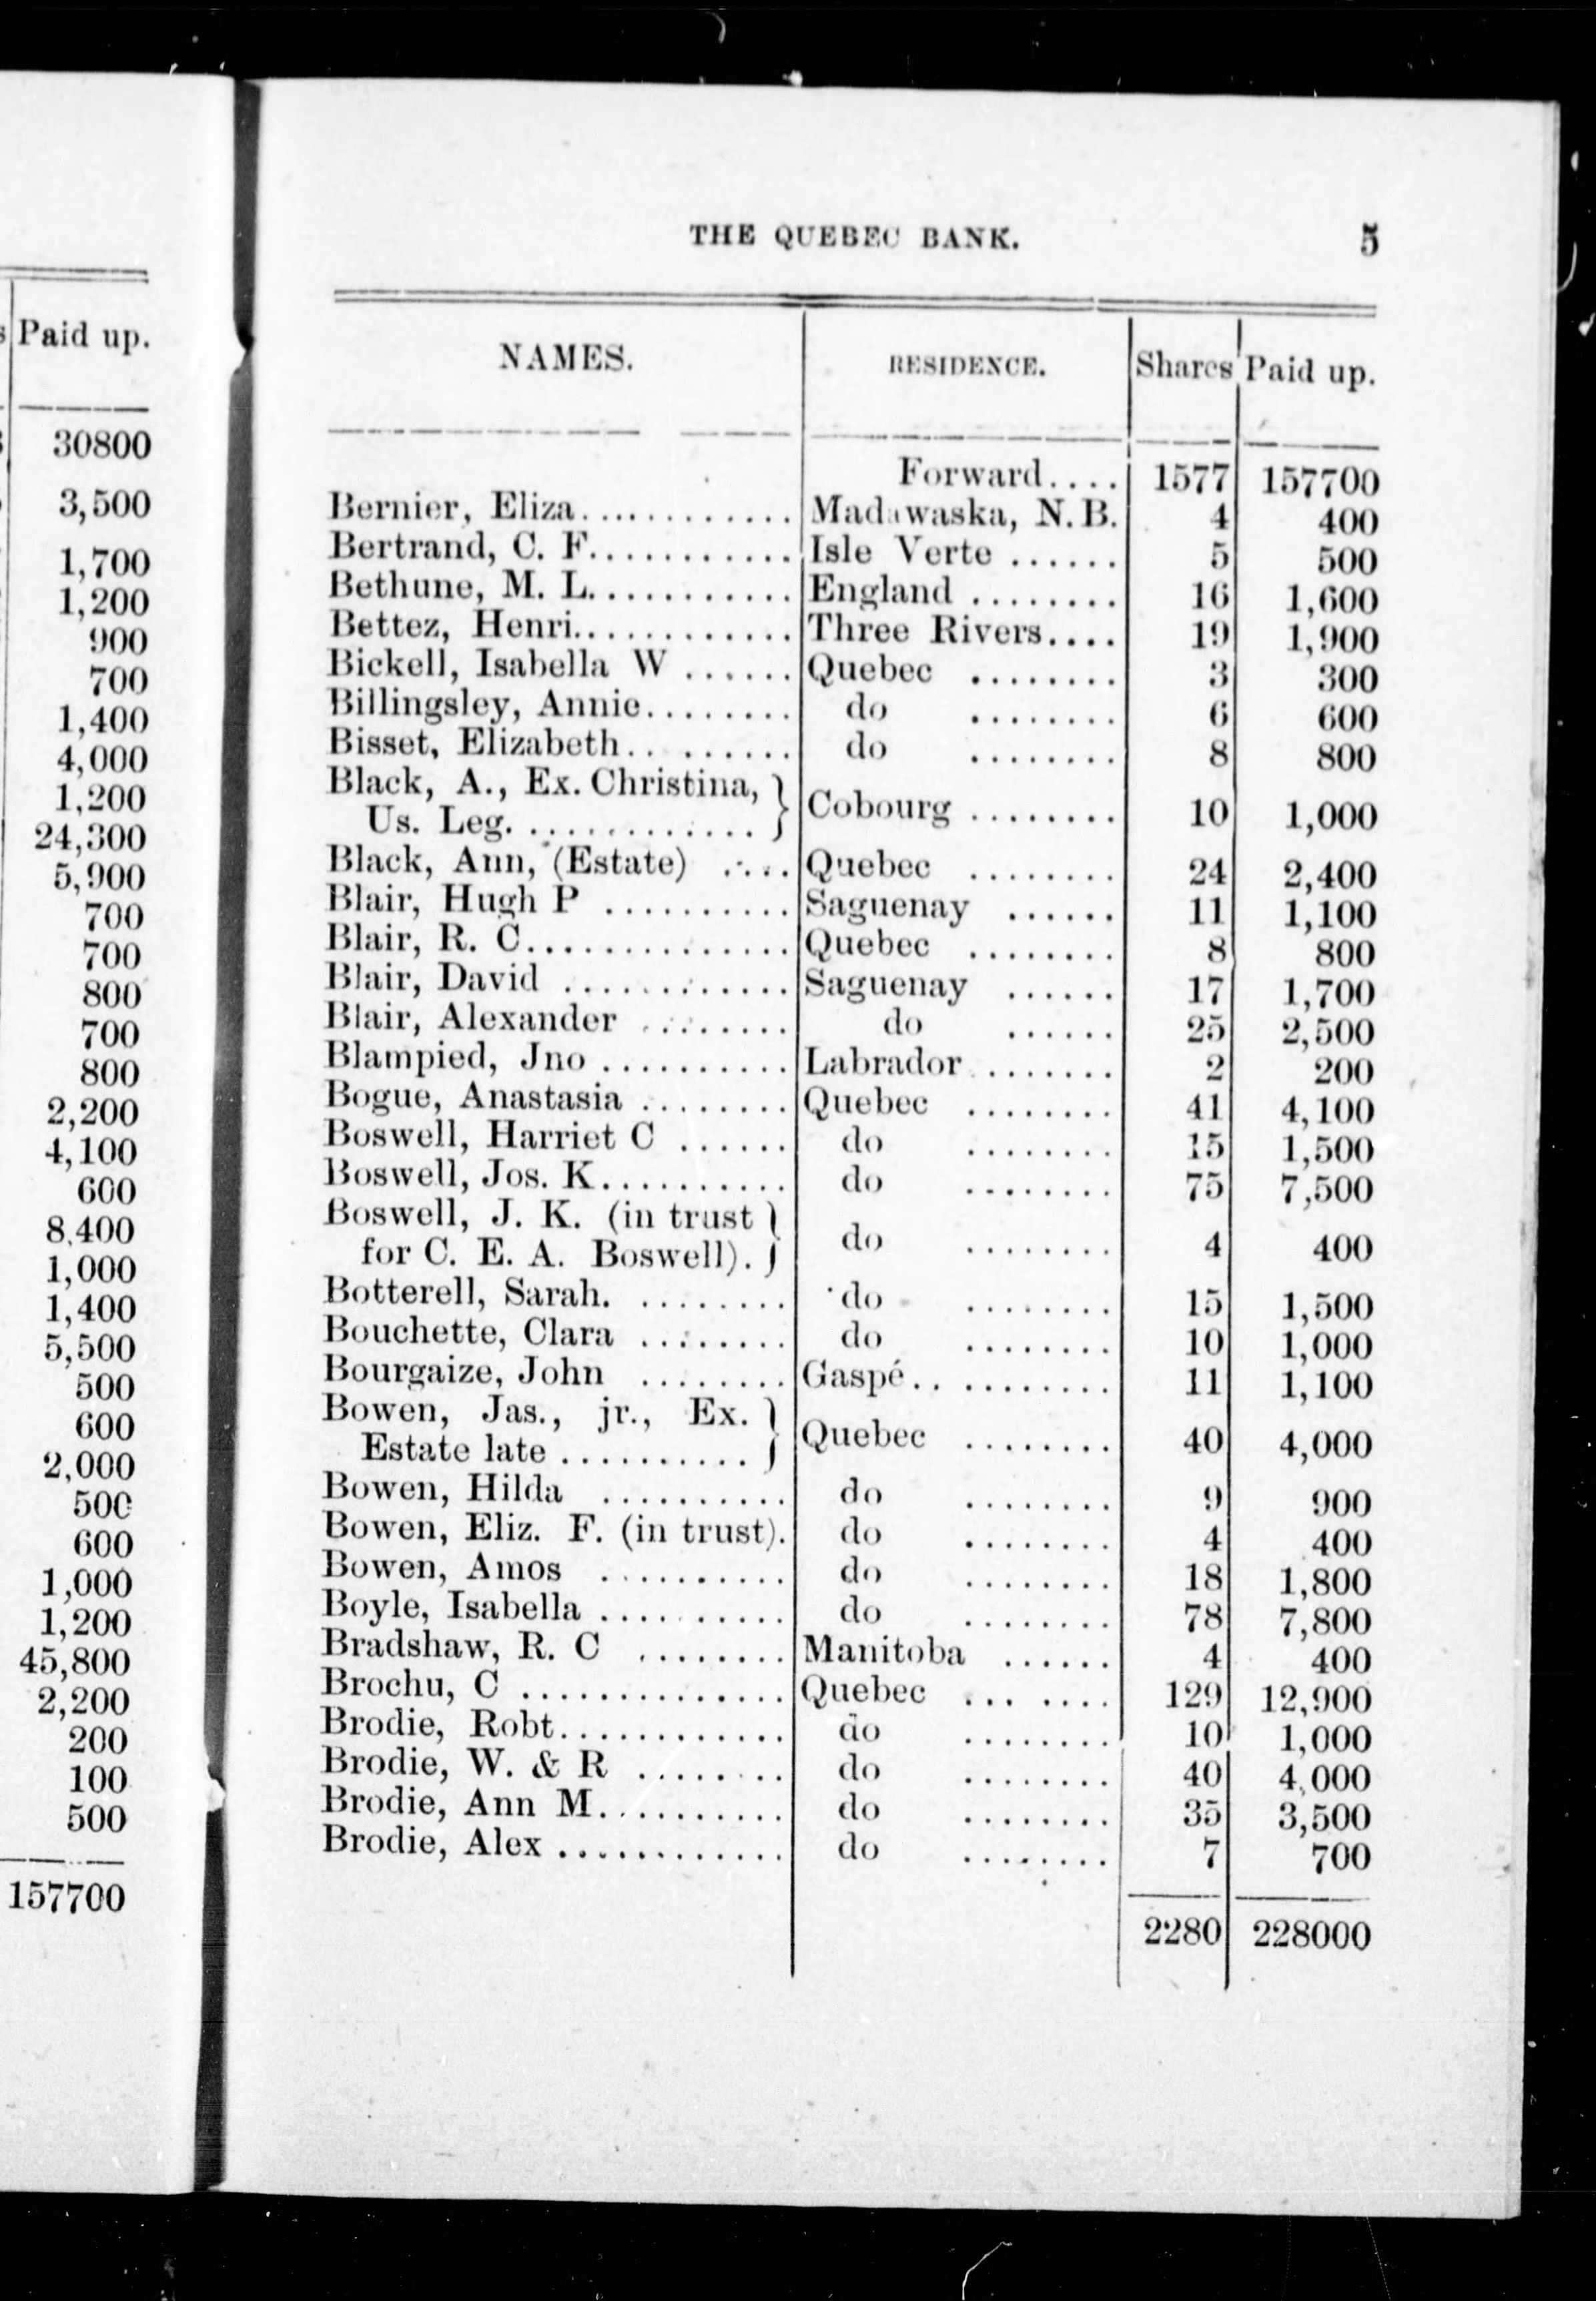 Paid up.
30800
3,500
1,700
1,200
900
700
1,400
4,000
1,200
24,300
5,900
700
700
800
700
800
2,200
4,100
600
8,400
1,000
1,400
5,500
500
600
2,000
500
600
1,000
1,200
45,800
2,200
200
100
500
157700
THE QUEBEC BANK. 5
NAMES. RESIDENCE. Shares Paid up.
Forward.... 1577 157700
Bernier, Eliza............. Madawaska, N.B. 4 400
Bertrand, C. F............ Isle Verte ...... 5 500
Bethune, M. L............ England ........ 16 1,600
Bettez, Henri............. Three Rivers.... 19 1,900
Bickell, Isabella W ...... Quebec ........ 3 300
Billingsley, Annie........ do ........ 6 600
Bisset, Elizabeth......... do ........ 8 800
Black, A., Ex. Christina, }
Us. Leg. ............ } Cobourg ........ 10 1,000
Black, Ann, (Estate) .... Quebec ........ 24 2,400
Blair, Hugh P .......... Saguenay ...... 11 1,100
Blair, R. C.............. Quebec ........ 8 800
Blair, David ............ Saguenay ...... 17 1,700
Blair, Alexander ........ do ...... 25 2,500
Blampied, Jno .......... Labrador ....... 2 200
Bogue, Anastasia ........ Quebec ........ 41 4,100
Boswell, Harriet C ...... do ........ 15 1,500
Boswell, Jos. K.......... do ........ 75 7,500
Boswell, J. K. (in trust }
for C. E. A. Boswell). } do ........ 4 400
Botterell, Sarah. ........ do ........ 15 1,500
Bouchette, Clara ........ do ........ 10 1,000
Bourgaize, John ........ Gaspé.......... 11 1,100
Bowen, Jas., jr., Ex. }
Estate late .......... } Quebec ........ 40 4,000
Bowen, Hilda .......... do ........ 9 900
Bowen, Eliz. F. (in trust). do ........ 4 400
Bowen, Amos .......... do ........ 18 1,800
Boyle, Isabella .......... do ........ 78 7,800
Bradshaw, R. C ........ Manitoba ...... 4 400
Brochu, C .............. Quebec ... .... 129 12,900
Brodie, Robt............. do ........ 10 1,000
Brodie, W. & R ........ do ........ 40 4,000
Brodie, Ann M.......... do ........ 35 3,500
Brodie, Alex ............ do ........ 7 700
2280 228000